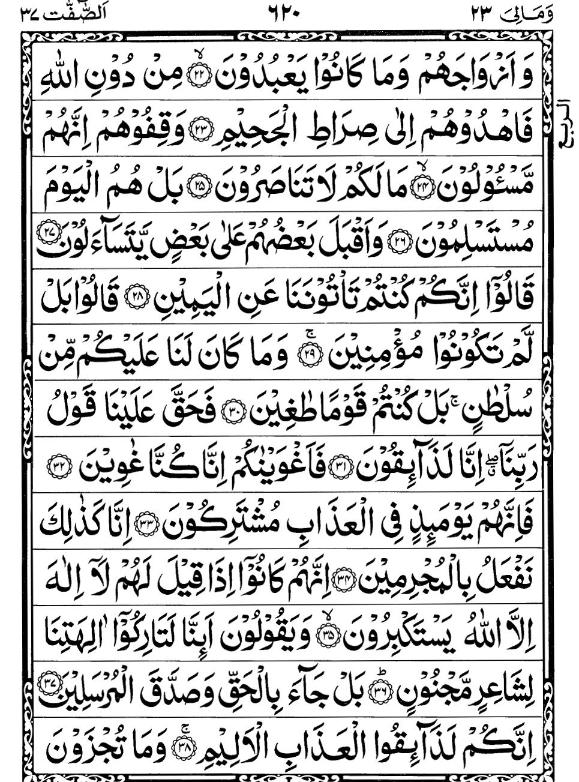 وَمَالِیَ ٢٣ ٦٢٠ اَلصّٰٓفّٰت ٣٧
وَ اَزْوَاجَهُمْ وَمَا كَانُوْا يَعْبُدُوْنَ ۙ‏﴿٢٢﴾ مِنْ دُوْنِ اللّٰهِ
فَاهْدُوْهُمْ اِلٰى صِرَاطِ الْجَحِيْمِ ﴿٢٣﴾ وَقِفُوْهُمْ اِنَّهُمْ
الربع
مَّسْـُٔوْلُوْنَ ۙ‏﴿٢٤﴾ مَا لَكُمْ لَا تَنَاصَرُوْنَ ﴿٢٥﴾ بَلْ هُمُ الْيَوْمَ
مُسْتَسْلِمُوْنَ ﴿٢٦﴾ وَاَقْبَلَ بَعْضُهُمْ عَلٰى بَعْضٍ يَّتَسَآءَلُوْنَ ﴿٢٧﴾
قَالُوْٓا اِنَّكُمْ كُنْتُمْ تَاْتُوْنَنَا عَنِ الْيَمِيْنِ ﴿٢٨﴾ قَالُوْا بَلْ
لَّمْ تَكُوْنُوْا مُؤْمِنِيْنَ ۚ‏﴿٢٩﴾ وَمَا كَانَ لَنَا عَلَيْكُمْ مِّنْ
سُلْطٰنٍ ۚ بَلْ كُنْتُمْ قَوْمًا طٰغِيْنَ ﴿٣٠﴾ فَحَقَّ عَلَيْنَا قَوْلُ
رَبِّنَآ ۖ اِنَّا لَذَآئِقُوْنَ ﴿٣١﴾ فَاَغْوَيْنٰكُمْ اِنَّا كُنَّا غٰوِيْنَ ﴿٣٢﴾
فَاِنَّهُمْ يَوْمَئِذٍ فِى الْعَذَابِ مُشْتَرِكُوْنَ ﴿٣٣﴾ اِنَّا كَذٰلِكَ
نَفْعَلُ بِالْمُجْرِمِيْنَ ﴿٣٤﴾ اِنَّهُمْ كَانُوْٓا اِذَا قِيْلَ لَهُمْ لَآ اِلٰهَ
اِلَّا اللّٰهُ يَسْتَكْبِرُوْنَ ۙ‏﴿٣٥﴾ وَيَقُوْلُوْنَ اَئِنَّا لَتَارِكُوْٓا اٰلِهَتِنَا
لِشَاعِرٍ مَّجْنُوْنٍ ؕ‏﴿٣٦﴾ بَلْ جَآءَ بِالْحَقِّ وَصَدَّقَ الْمُرْسَلِيْنَ ﴿٣٧﴾
اِنَّكُمْ لَذَآئِقُوا الْعَذَابِ الْاَلِيْمِ ۚ‏﴿٣٨﴾ وَمَا تُجْزَوْنَ